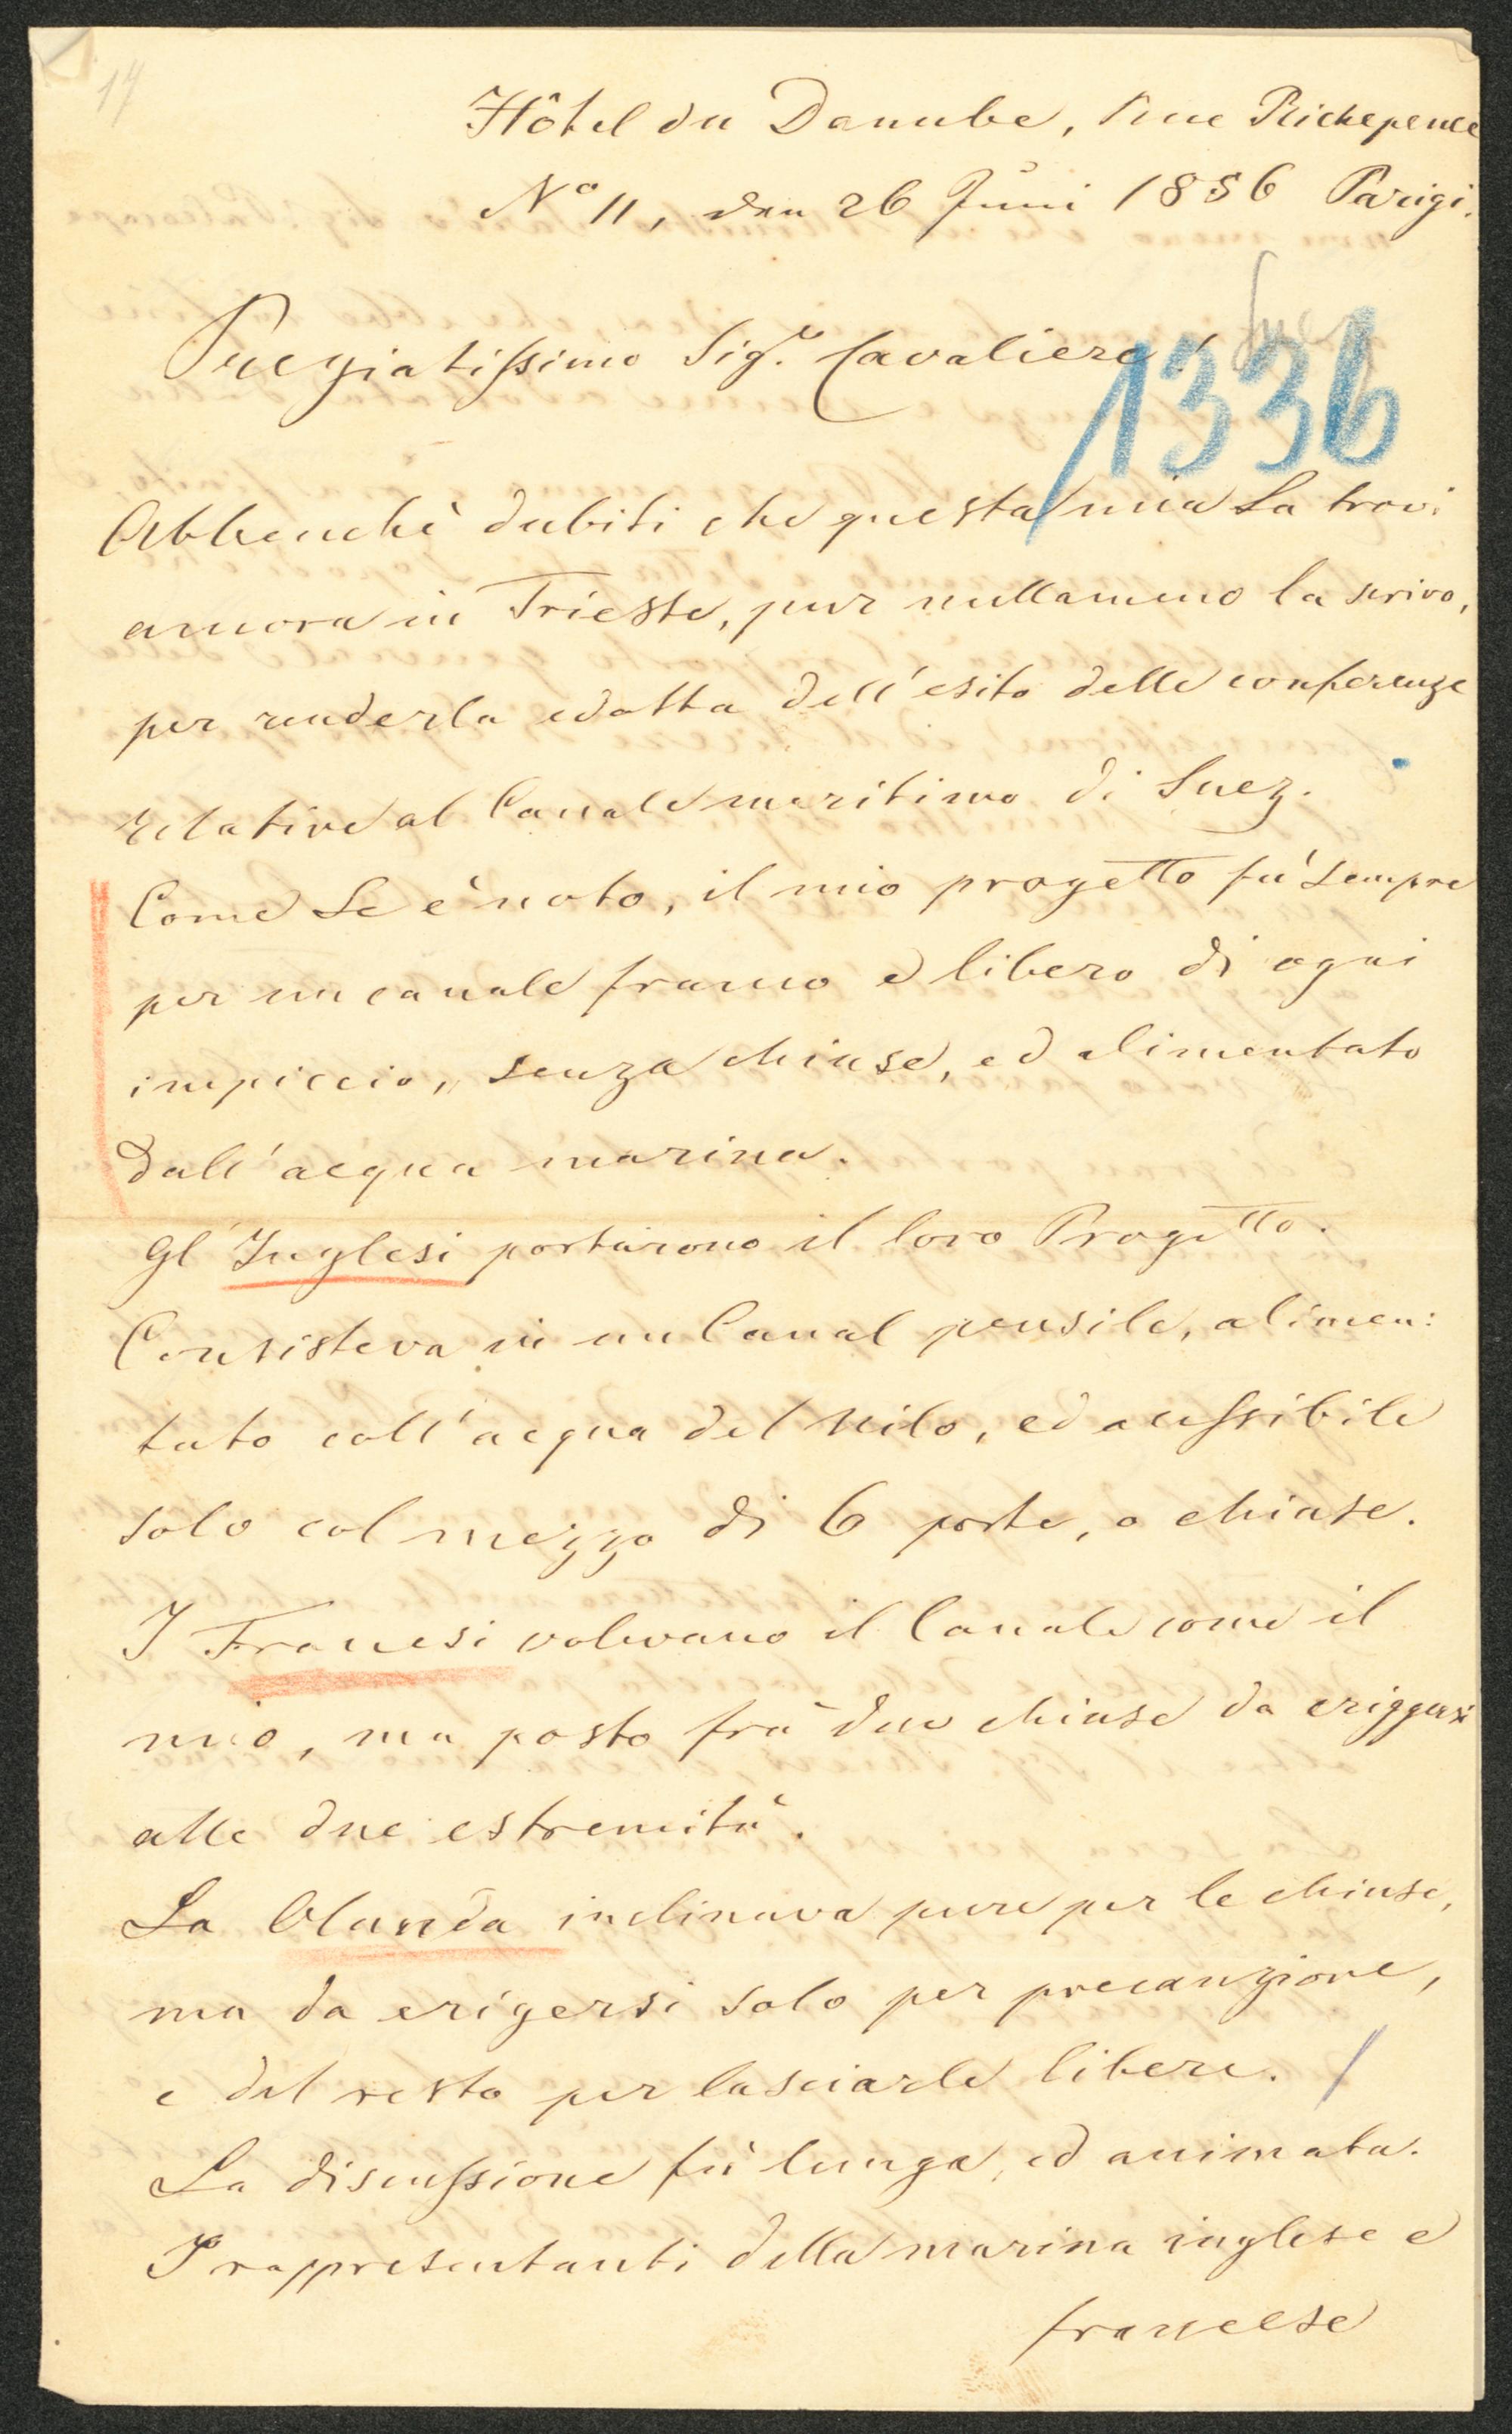 14
Hôtel du Danube, Rue Richepence
Nº 11, den 26 Juni 1856 Parigi.
Suez
Pregiatissimo Sig.e Cavaliere!
1336
Abbenchè dubiti che questa mia La trovi
ancora in Trieste, pur nullameno la scrivo,
per renderla edotta dell'esito delle conferenze
relative al Canale maritimo di Suez.
Come Le è noto, il mio progetto fù sempre
per un canale franco e libero di ogni
impiccio, senza chiuse, ed alimentato
dall'acqua marina.
Gl'Inglesi portarono il loro Progetto.
Consisteva in un Canal pensile, alimen:
tato coll'acqua del Nilo, ed acessibile
solo col mezzo di 6 porte, o chiuse.
I Francesi volevano il Canale come il
mio, ma posto frà due chiuse da eriggersi
alle due estremità.
La Olanda inclinava pure per le chiuse,
ma da erigersi solo per precauzione,
e del resto per lasciarle libere.
La discussione fù lunga, ed animata.
I rappresentanti della marina inglese e
francese